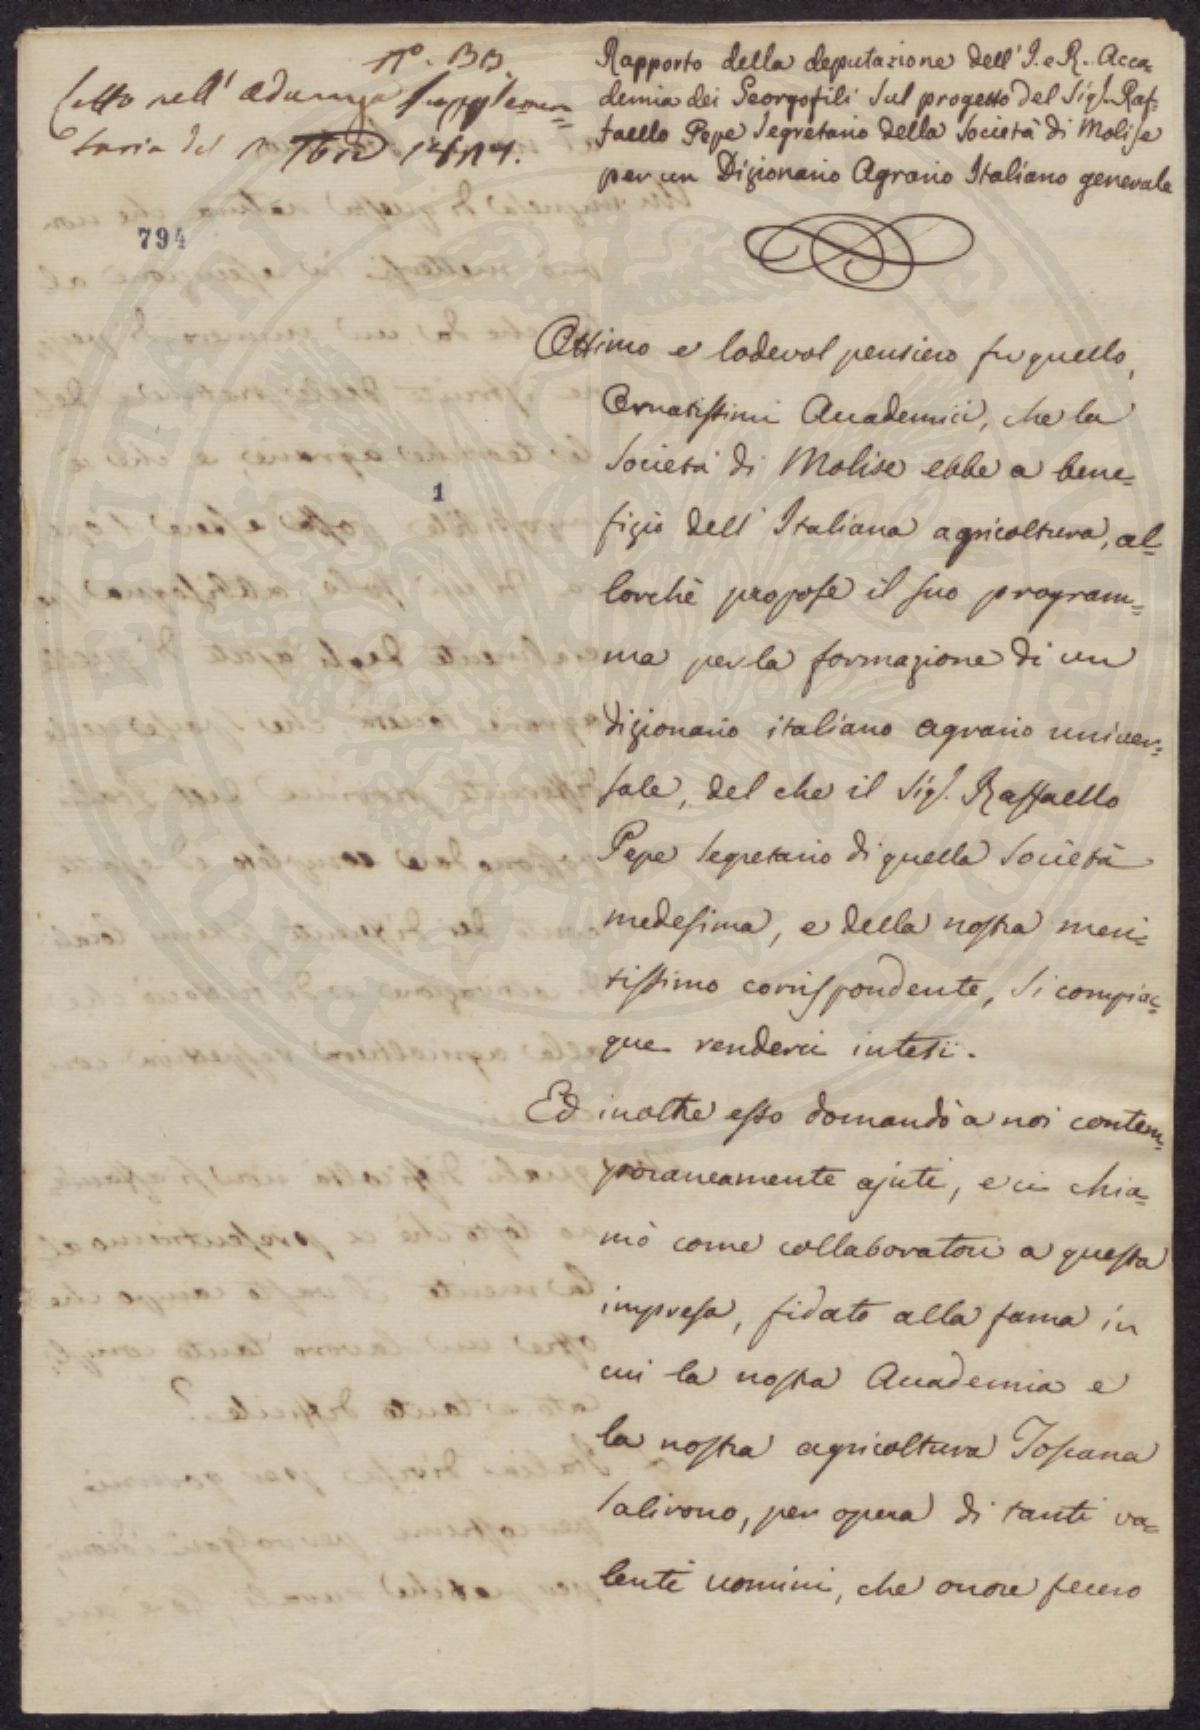 n.º
Letto nell' adunanza supplemen=
taria del 7bre
794
1
Rapporto della deputazione dell' I. e R. Acca=
demia dei Georgofili sul progetto del Sig.r Raf=
faello Pepe Segretario della Società di Molise
per un Dizionario Agrario Italiano generale
Ottimo e lodevol pensiero fu quello,
Ornatissimi Accademici, che la
Società di Molise ebbe a bene=
fizio dell' Italiana agricoltura, al=
lorchè propose il suo program=
ma per la formazione di un
dizionario italiano agrario univer=
sale, del che il Sig.r Raffaello
Pepe Segretario di quella Società
medesima, e della nostra meri=
tissimo corrispondente, si compiac=
que renderci intesi.
Ed inoltre esso domandò a noi contem=
poraneamente ajuti, e ci chia=
mò come collaboratori a questa
impresa, fidato alla fama in
cui la nostra Accademia e
la nostra agricoltura Toscana
salirono, per opera di tanti va=
lenti uomini, che onore fecero